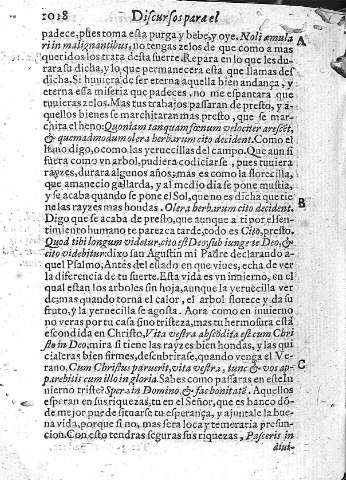 1018 Discursos para el
padece, pues toma esta purga y bebe, y oye. Noli æmula
ri in malignantibus, no tengas zelos de que como a mas
queridos los trata desta suerte. Repara en lo que les du-
rara su dicha, y lo que permanecera esta que llamas des
dicha. Si huuiera de ser eterna aquella bien andança, y
eterna essa miseria que padeces, no me espantara que
tuuieras zelos. Mas tus trabajos passaran de presto, y a-
quellos bienes se marchitaran mas presto, que se mar-
chita el heno: Quoniam tanquam fœnum velociter arescēt,
& quemadmodum olera herbarum cito decident. Como el
heno digo, o como las yeruecillas del campo. Que aun si
fuera como vn arbol, pudiera codiciarse, pues tuuiera
rayzes, durara algunos años, mas es como la florecilla,
que amanecio gallarda, y al medio dia se pone mustia,
y se acaba quando se pone el Sol, que no es dicha que tie
ne las rayzes mas hondas. Olera herbarum cito decident.
Digo que se acaba de presto, que aunque a ti por el sen-
timiento humano te parezca tarde, todo es Cito, presto.
Quod tibi longum videtur, cito est Deo, subiunge te Deo, &
cito videbitur: dixo san Agustin mi Padre declarando a-
quel Psalmo, Antes del estado en que viues, echa de ver
la diferencia de tu suerte. Esta vida es vn inuierno, en el
qual estan los arboles sin hoja, aunque la yeruecilla ver
de: mas quando torna el calor, el arbol florece y da su
fruto, y la yeruecilla se agosta. Aora como en inuierno
no veras por tu casa sino tristeza, mas tu hermosura està
escondida en Christo, Vita vestra abscōdita est cum Chri
sto in Deo, mira si tiene las rayzes bien hondas, y las qui
cialeras bien firmes, descubrirase, quando venga el Ve-
rano, Cum Christus paruerit, vita vestra, tunc & vos ap-
parebitis cum illo in gloria. Sabes como passaras en este In
uierno triste? Spera in Domino, & fac bonitatē. Aquellos
esperan en sus riquezas, tu en el Señor, que es banco dō-
de mejor puede situarse tu esperança, y ajuntale la bue-
na vida, porque si no, mas sera loca y temeraria presun-
cion. Con esto tendras seguras sus riquezas, Pasceris in
diui-
A
B
C